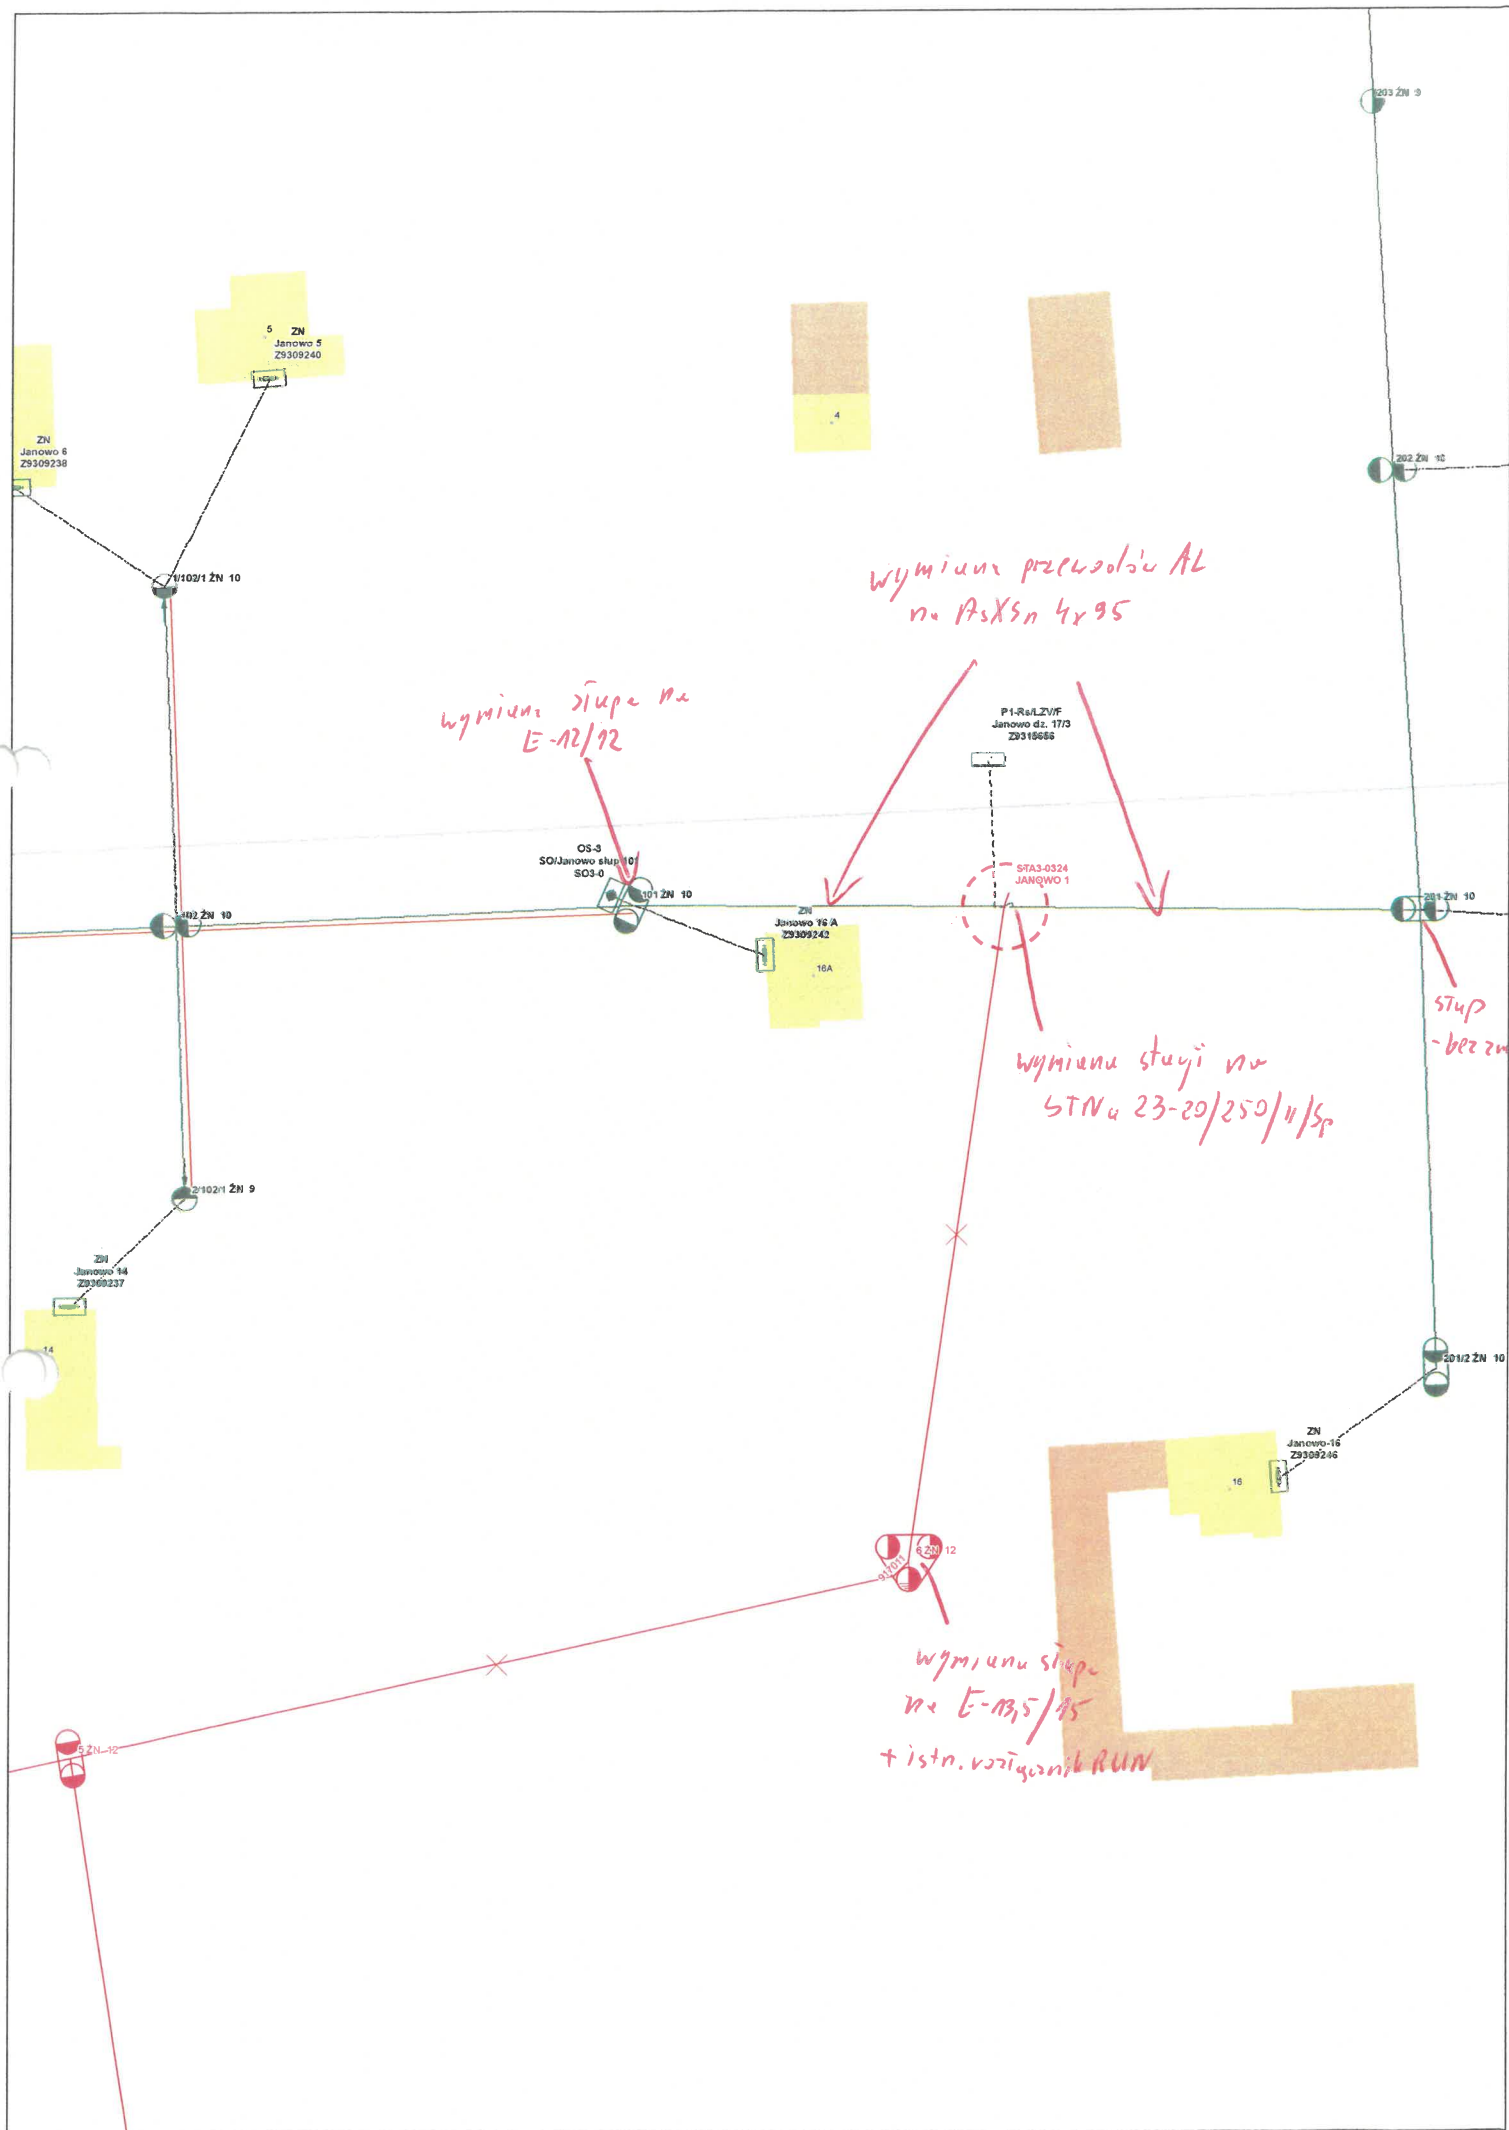 203 ŻN 9
5 ZN
Janowo 5
Z9309240
4
ZN
Janowo 6
Z9309238
202 ŻN 10
1/102/1 ŻN 10
wymiana przewodów AL
na AsXSn 4x95
wymiana słupa na
E-12/12
P1-Rs/LZV/F
Janowo dz. 17/3
Z9315656
OS-3
SO/Janowo słup 101
SO3-0
STA3-0324
JANOWO 1
101 ŻN 10
201 ŻN 10
102 ŻN 10
ZN
Janowo 16 A
Z9309242
16A
słup
- bez zm
wymiana stacji na
STNu 23-20/250/II/Sp
2/102/1 ŻN 9
ZN
Janowo 14
Z9309237
14
201/2 ŻN 10
ZN
Janowo 16
Z9309246
16
6 ŻN 12
917011
wymiana słupa
na E-13,5/15
+ istn. rozłącznik RUN
5 ŻN 12